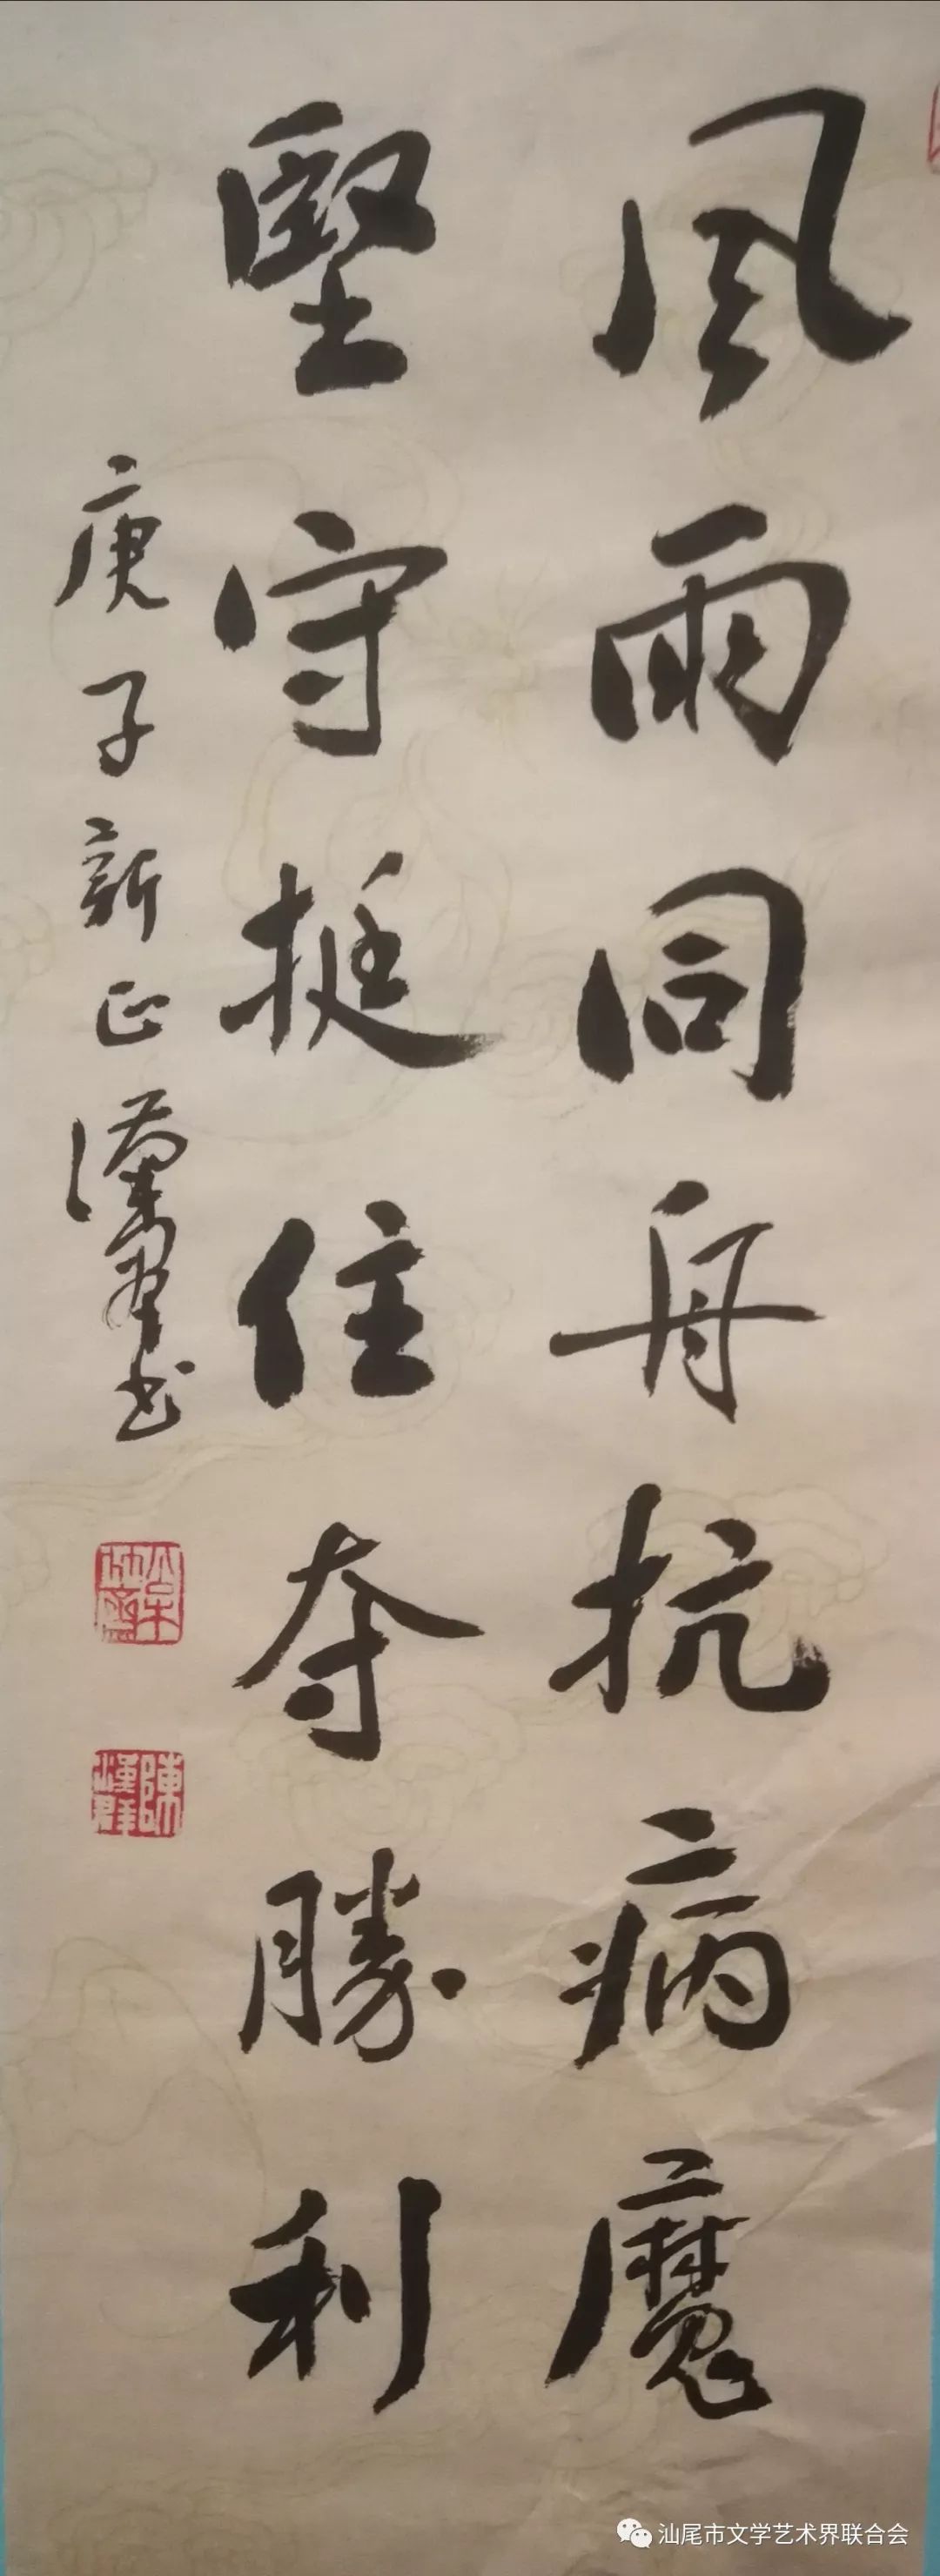 風雨同舟抗病魔
堅守挺住夺勝利
庚子新正漢群书
陳漢群
汕尾市文学艺术界联合会